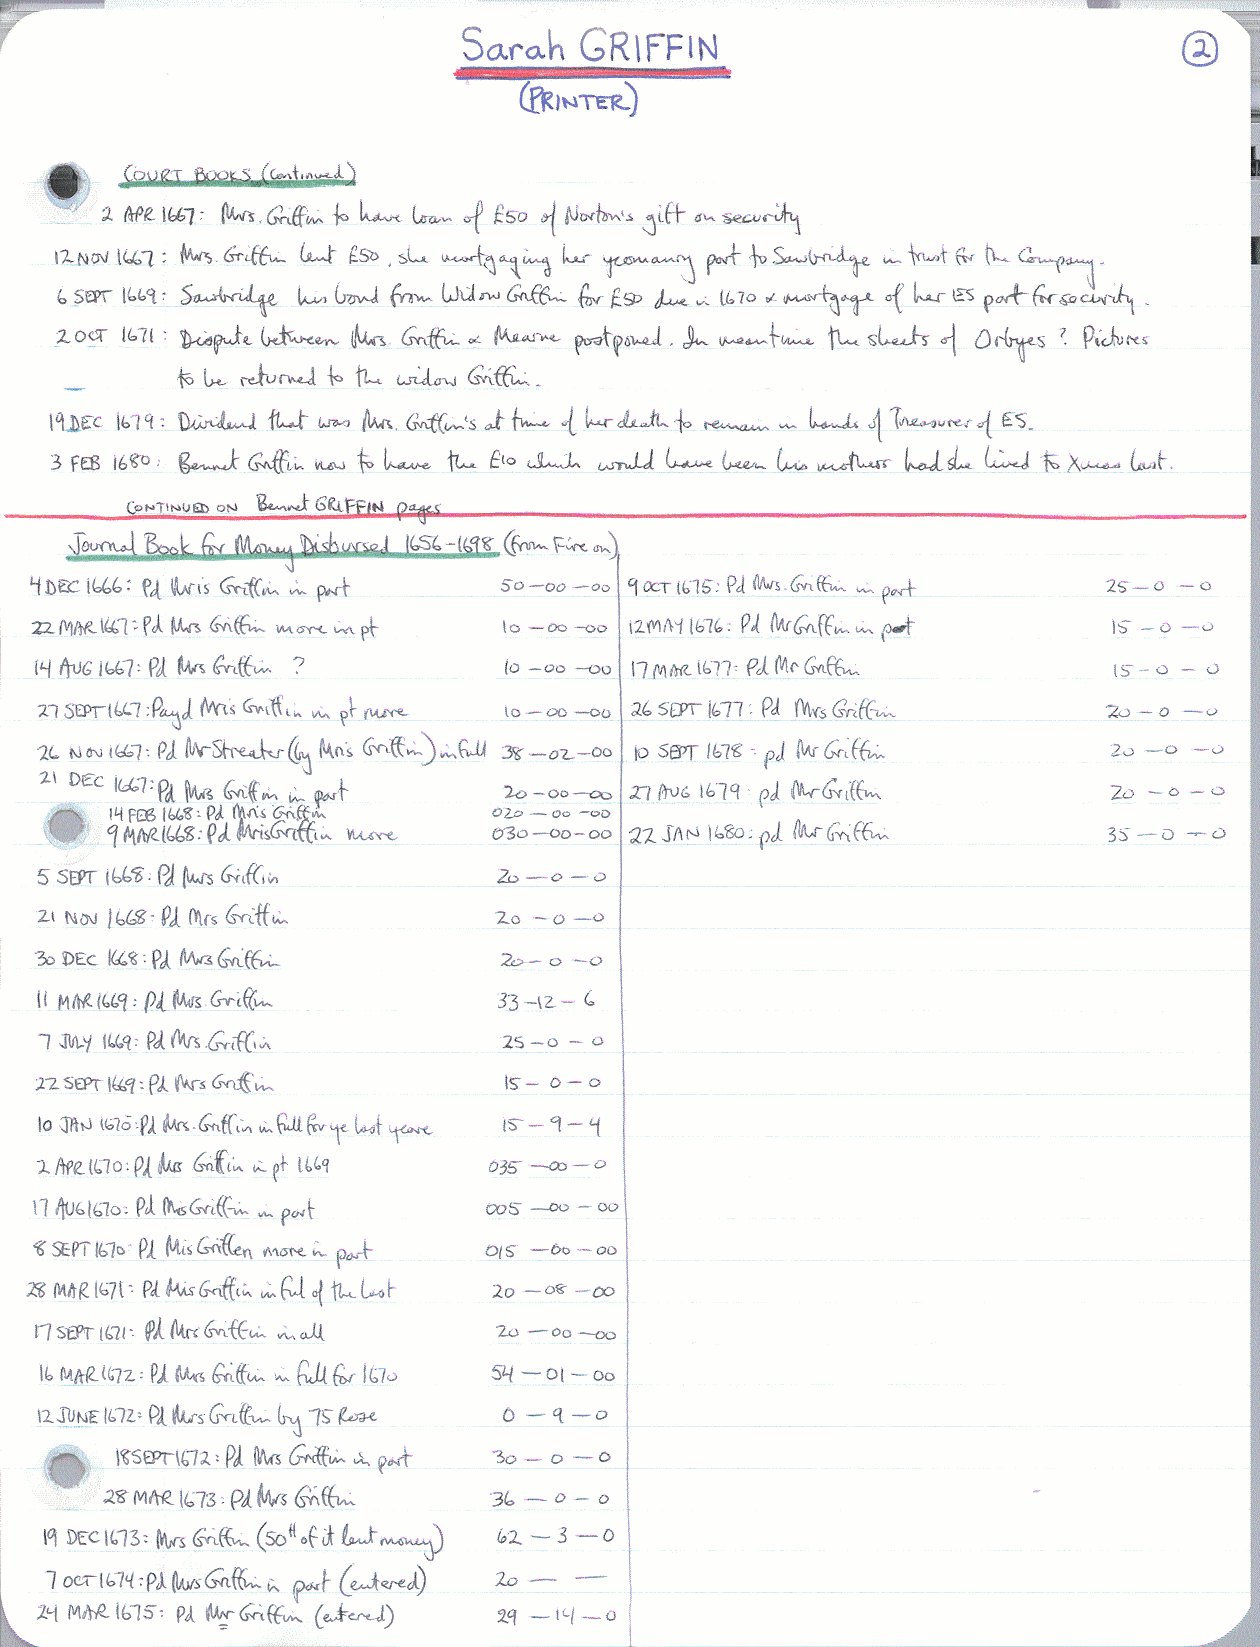 Sarah GRIFFIN
2
(PRINTER)
COURT BOOKS (Continued)
2 APR 1667: Mrs. Griffin to have loan of £50 of Norton's gift on security
12 NOV 1667: Mrs. Griffin lent £50, she mortgaging her yeomanry part to Sawbridge in trust for the Company.
6 SEPT 1669: Sawbridge his bond from Widow Griffin for £50 due in 1670 & mortgage of her ES part for security.
2 OCT 1671: Dispute between Mrs. Griffin & Mearne postponed. In meantime the sheets of Orbyes? Pictures
to be returned to the widow Griffin.
19 DEC 1679: Dividend that was Mrs. Griffin's at time of her death to remain in hands of Treasurer of ES.
3 FEB 1680: Bennet Griffin now to have the £10 which would have been his mothers had she lived to Xmas last.
CONTINUED ON Bennet GRIFFIN pages
Journal Book for Money Disbursed 1656-1698 (from Fire on)
4 DEC 1666: Pd Mris Griffin in part 50-00-00
22 MAR 1667: Pd Mrs Griffin more in pt 10-00-00
14 AUG 1667: Pd Mrs Griffin ? 10-00-00
27 SEPT 1667: Payd Mris Griffin in pt more 10-00-00
26 NOV 1667: Pd Mr Streater (by Mris Griffin) in full 38-02-00
21 DEC 1667: Pd Mrs Griffin in part 20-00-00
14 FEB 1668: Pd Mris Griffin 020-00-00
9 MAR 1668: Pd Mris Griffin more 030-00-00
5 SEPT 1668: Pd Mrs Griffin 20-0-0
21 NOV 1668: Pd Mrs Griffin 20-0-0
30 DEC 1668: Pd Mrs Griffin 20-0-0
11 MAR 1669: Pd Mrs. Griffin 33-12-6
7 JULY 1669: Pd Mrs. Griffin 25-0-0
22 SEPT 1669: Pd Mrs Griffin 15-0-0
10 JAN 1670: Pd Mrs. Griffin in full for ye last yeare 15-9-4
2 APR 1670: Pd Mrs Griffin in pt 1669 035-00-0
17 AUG 1670: Pd Mis Griffin in part 005-00-00
8 SEPT 1670: Pd Mis Griffen more in part 015-00-00
28 MAR 1671: Pd Mis Griffin in ful of the last 20-08-00
17 SEPT 1671: Pd Mrs Griffin in all 20-00-00
16 MAR 1672: Pd Mrs Griffin in full for 1670 54-01-00
12 JUNE 1672: Pd Mrs Griffin by 75 Rose 0-9-0
18 SEPT 1672: Pd Mrs Griffin in part 30-0-0
28 MAR 1673: Pd Mrs Griffin 36-0-0
19 DEC 1673: Mrs Griffin (50li of it lent money) 62-3-0
7 OCT 1674: Pd Mrs Griffin in part (entered) 20 — —
24 MAR 1675: Pd Mr Griffin (entered) 29-14-0
9 OCT 1675: Pd Mrs. Griffin in part 25-0-0
12 MAY 1676: Pd Mr Griffin in part 15-0-0
17 MAR 1677: Pd Mr Griffin 15-0-0
26 SEPT 1677: Pd Mrs Griffin 20-0-0
10 SEPT 1678: pd Mr Griffin 20-0-0
27 AUG 1679: pd Mr Griffin 20-0-0
22 JAN 1680: pd Mr Griffin 35-0-0